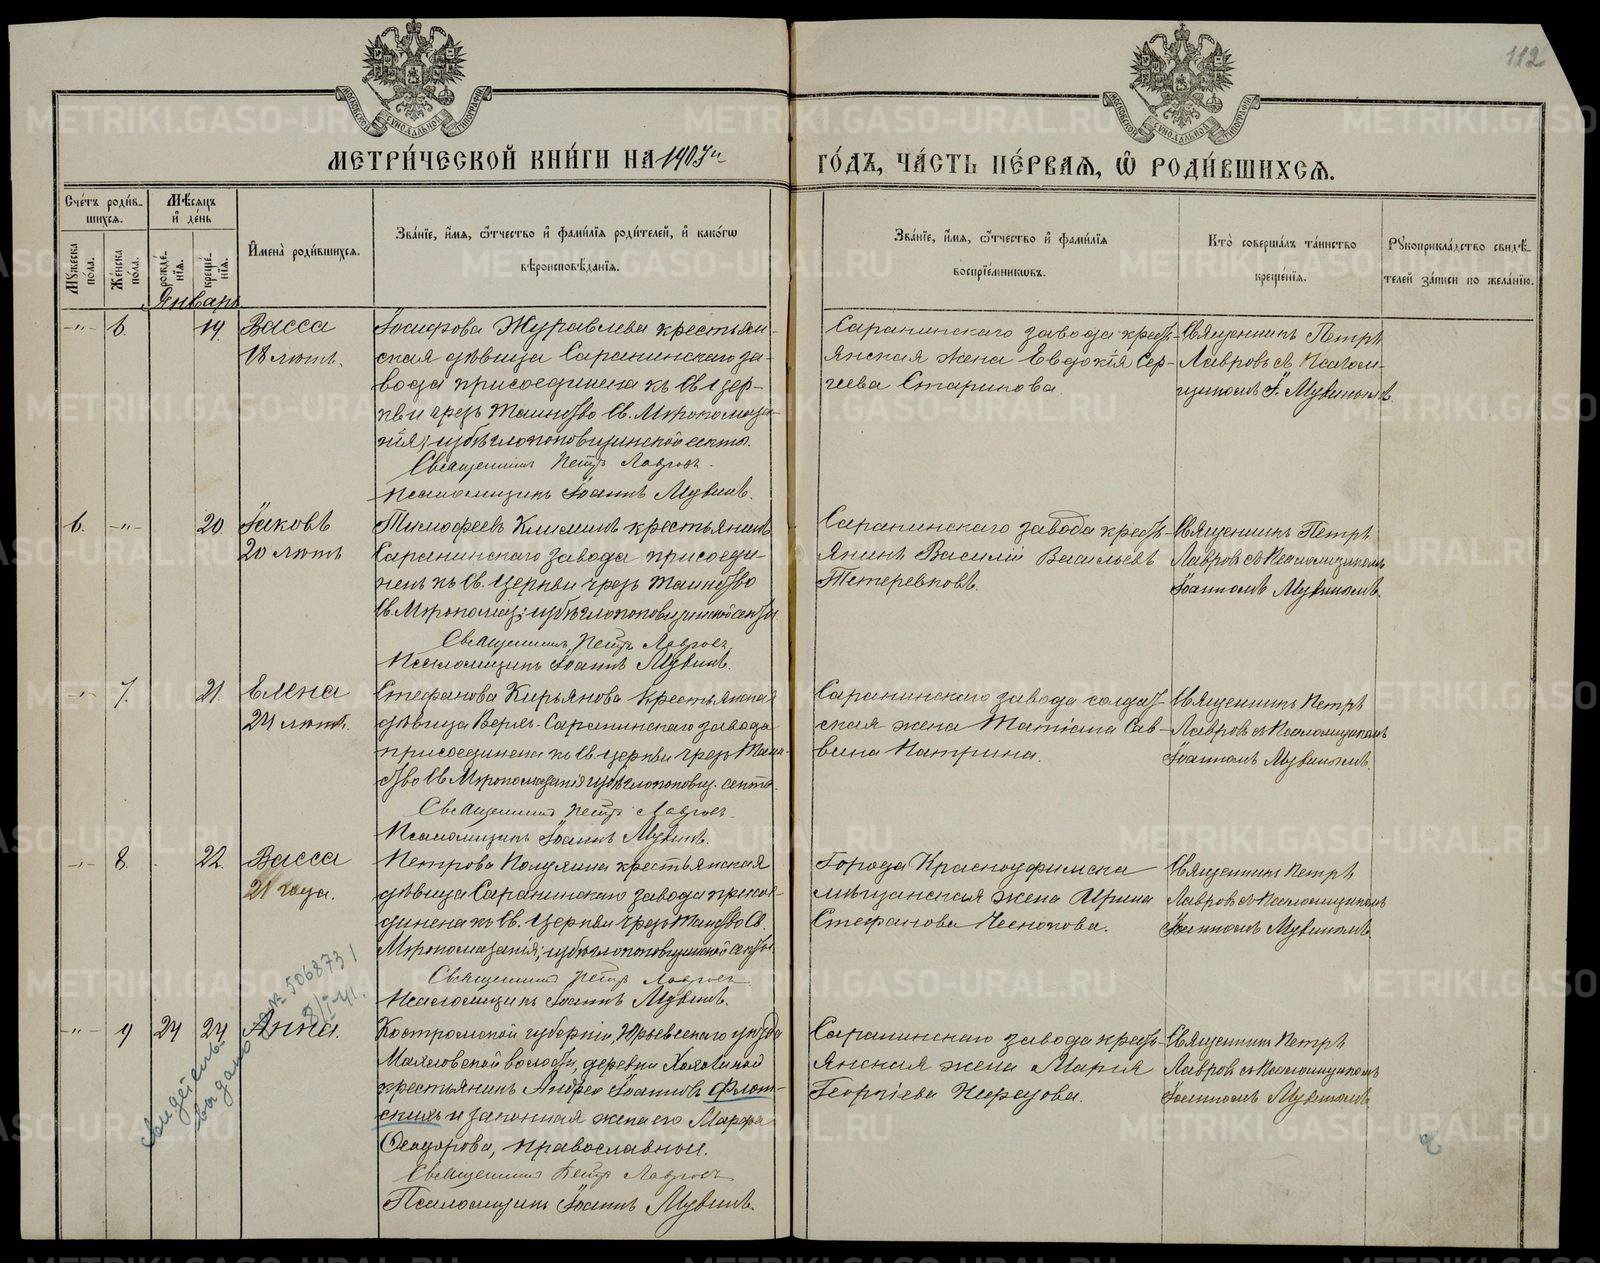 112
МОСКОВСКОЙ СѴНОДАЛЬНОЙ ТИПОГРАФІИ
МОСКОВСКОЙ СѴНОДАЛЬНОЙ ТИПОГРАФІИ
МЕТРИ́ЧЕСКОЙ КНИ́ГИ НА 1907й ГО́ДЪ, ЧА́СТЬ ПЕ́РВАѦ, Ѽ РОДИ́ВШИХСѦ.
Счетъ роди́вшихсѧ.
Мꙋжеска по́ла.
Же́нска по́ла.
Мѣсѧцъ и де́нь
рожде́нїѧ.
креще́нїѧ.
Имена̀ роди́вшихсѧ.
Зва́нїе, и́мѧ, ѻ҆́тчество и҆ фами́лїѧ роди́телей, и҆ како́гѡ
вѣроисповѣ́данїѧ.
Зва́нїе, и́мѧ, ѻ҆́тчество и҆ фами́лїѧ
воспрїе́мникѡвъ.
Кто̀ соверша́лъ та́инство
креще́нїѧ.
Рꙋкоприкла́дство свидѣ́-
телей за́писи по жела́нїю.
Январь
-"- 6. 19. Васса
18 лѣтъ.
Іосифова Журавлева крестьян-
ская дѣвица Саранинскаго за-
вода присоединена къ Св. Цер-
кви чрезъ таинство Св. Мѵропомаза-
нія, изъ бѣглопоповщинской секты.
Священникъ Петръ Лавровъ.
Псаломщикъ Іоаннъ Мувинъ.
Саранинскаго завода кресть-
янская жена Евдокія Сер-
гѣева Старикова.
Священникъ Петръ
Лавровъ съ Псалом-
щикомъ І. Мувинымъ.
6. -"- 20. Іаковъ
20 лѣтъ
Тимофеевъ Климинъ крестьянинъ
Саранинскаго завода присоеди-
ненъ къ Св. Церкви чрезъ таинство
Св. Мѵропомаз; изъ бѣглопоповщинской секты
Священникъ Петръ Лавровъ.
Псаломщикъ Іоаннъ Мувинъ.
Саранинскаго завода кресть-
янинъ Василій Васильевъ
Тетеревковъ.
Священникъ Петръ
Лавровъ съ Псаломщикомъ
Іоанномъ Мувинымъ.
-"- 7. 21. Елена
24 лѣтъ.
Стефанова Кирьянова крестьянская
дѣвица Верхъ-Саранинскаго завода
присоединена къ Св. Церкви чрезъ Таин-
ство Св. Мѵропомазанія изъ бѣглопоповщ. секты.
Священникъ Петръ Лавровъ.
Псаломщикъ Іоаннъ Мувинъ.
Саранинскаго завода солдат-
ская жена Татіана Сав-
вина Патрина.
Священникъ Петръ
Лавровъ съ Псаломщикомъ
Іоанномъ Мувинымъ.
-"- 8. 22. Васса
21 года.
Петрова Полузина крестьянская
дѣвица Саранинскаго завода присое-
динена къ Св. Церкви чрезъ таинство Св.
Мѵропомазанія; изъ бѣглопоповщинской секты.
Священникъ Петръ Лавровъ.
Псаломщикъ Іоаннъ Мувинъ.
Города Красноуфимска
мѣщанская жена Ирина
Стефанова Чеснокова.
Священникъ Петръ
Лавровъ съ Псаломщикомъ
Іоанномъ Мувинымъ.
-"- 9 24 24 Анна.
Костромской губерніи, Юрьевскаго уѣзда
волости, деревни
крестьянинъ Андрей Іоанновъ Флот-
скихъ и законная жена его Марфа
Ѳеодорова, православные.
Священникъ Петръ Лавровъ
Псаломщикъ Іоаннъ Мувинъ.
Саранинскаго завода кресть-
янская жена Марія
Георгіева
Священникъ Петръ
Лавровъ съ Псаломщикомъ
Іоанномъ Мувинымъ
выдано № 506873
METRIKI.GASO-URAL.RU